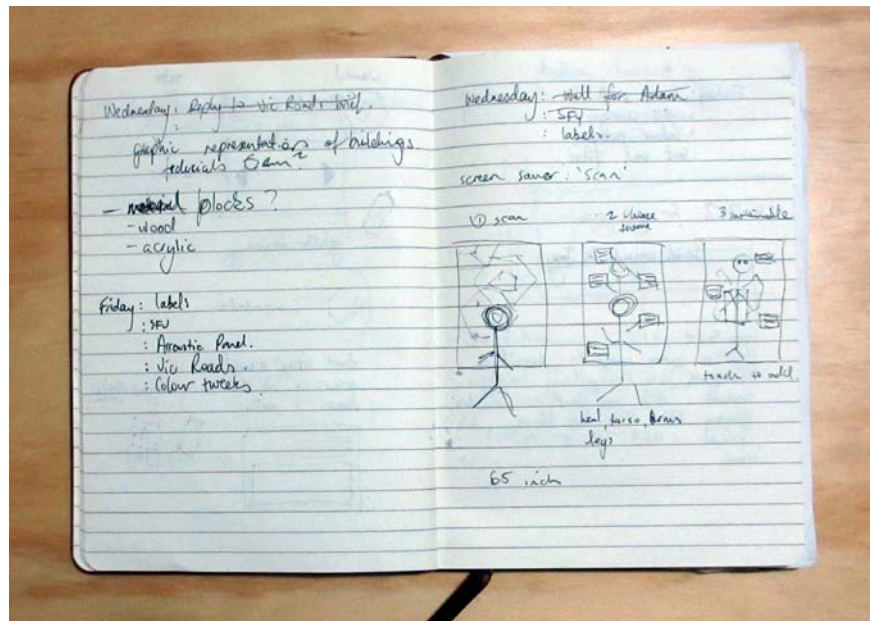 Wednesday: Reply to Vic Roads brief.
:
graphic representations of buildings
fiducials 6cm²
- blocks?
- wood
- acrylic
Friday: labels
: SFU
: Accoustic Panel.
: Vic Roads.
: Colour tweeks.
Wednesday: Wall for Adam
: SFU
: labels.
screen saver: 'scan'
① scan
2 choose
3
touch to add
head, torso, arms
legs
65 inch